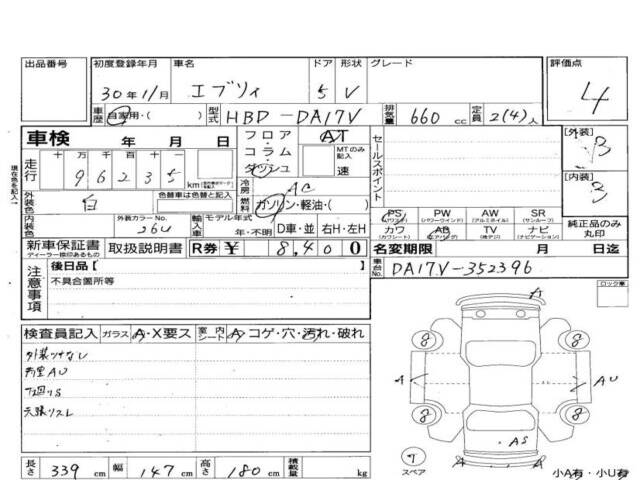 出品番号 初度登録年月 車名 ドア 形状 グレード 評価点
30年11月 エブリィ 5 V 4
車歴 自家用・( ) 型式 HBD-DA17V 排気量 660 cc 定員 2(4)人
車検 年 月 日 フロア・コラム・ダッシュ AT MTのみ記入 速 セールスポイント 【外装】 B
走行 十 万 千 百 十 一 96235 km 冷房 AC 【内装】 3
現在色を記入
外装色 白 色替車は色替と記入 燃料 ガソリン・軽油・( )
内装色 外装カラーNo. 26U 輸入車 モデル年式 年・不明 D車・並 右H・左H
PS (パワステ) PW (パワーウインド) AW (アルミホイル) SR (サンルーフ)
カワ (カワシート) AB (エアバッグ) TV (純テレビ) ナビ (ナビゲーション) 純正品のみ丸印
新車保証書 ディーラー捺印あるもの 取扱説明書 R券 ¥ 8,400 名変期限 月 日迄
注意事項 後日品【 】 車台No. DA17V-352396
不具合箇所等 ロック車
検査員記入 ガラス A・X要ス 室内シート A コゲ・穴・汚れ・破れ
外装ツヤなし
荷室AU
下回りS
天張りスレ
A
8 8
A AU
8 8
AS
T スペア A A
長さ 339 cm 幅 147 cm 高さ 180 cm 積載量 kg 小A有・小U有